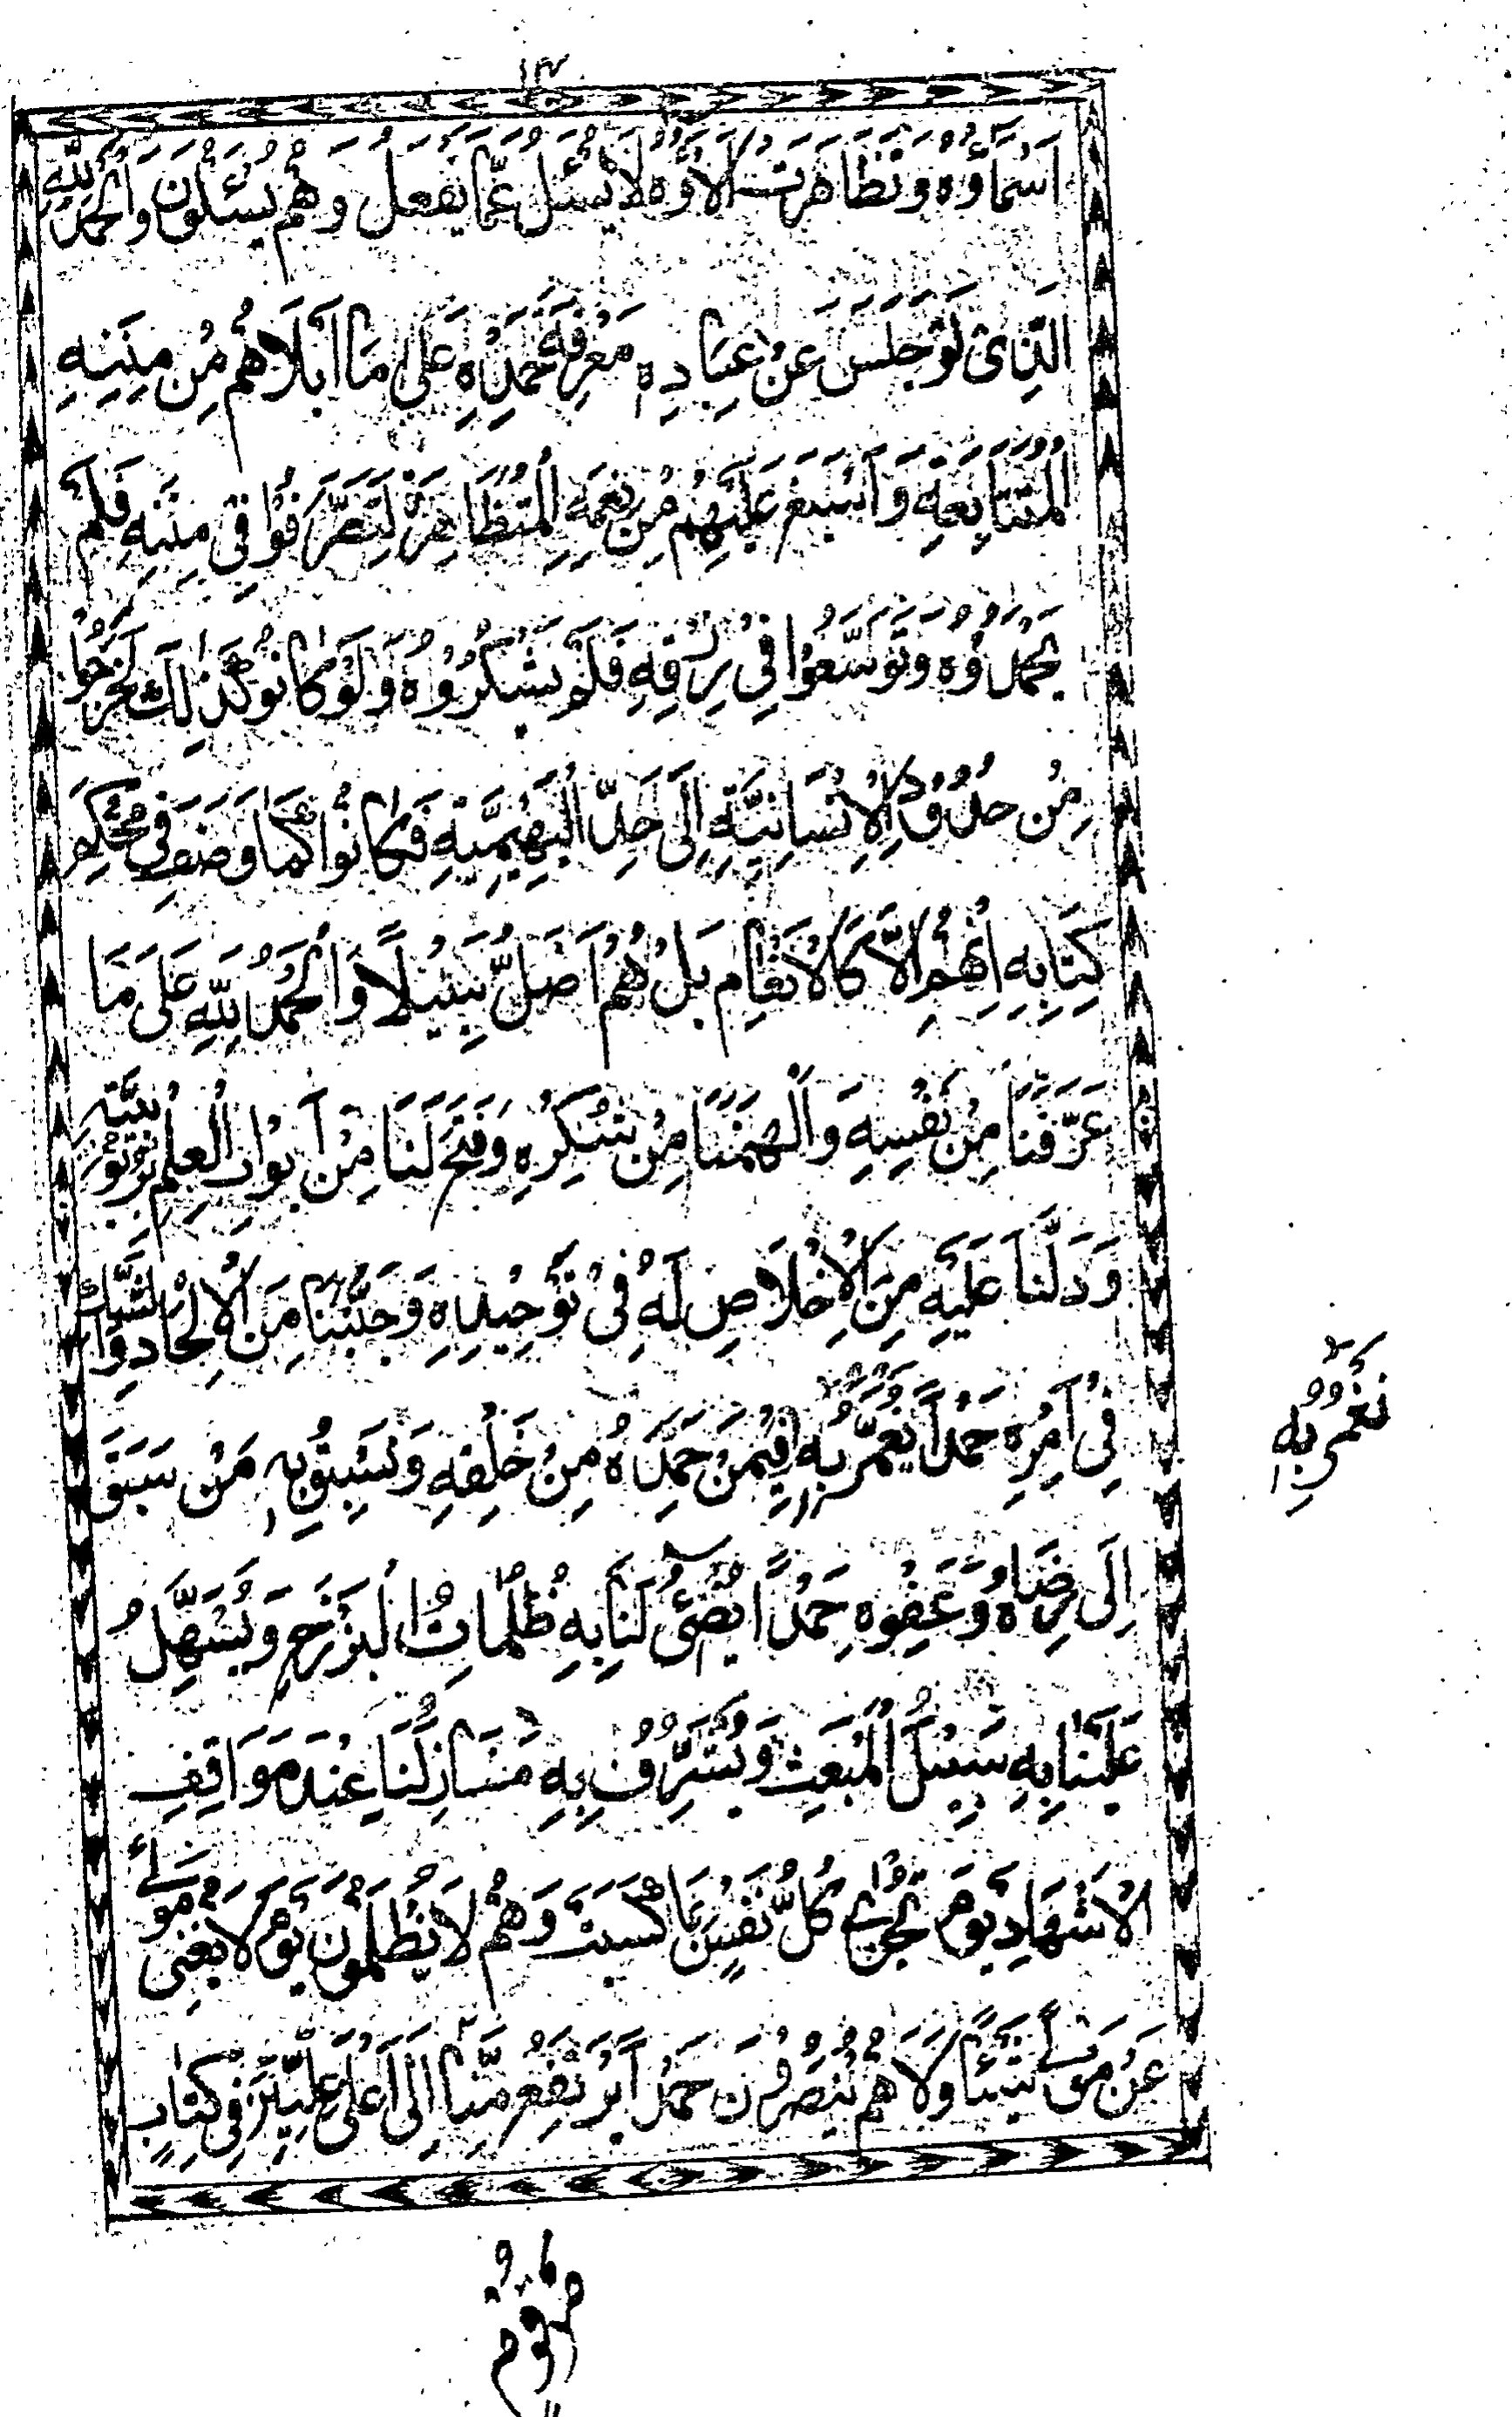 ١٣
اَسْمَاؤُهُ وَتَظَاهَرَتْ اٰلَاؤُهُ لَا يُسْئَلُ عَمَّا يَفْعَلُ وَهُمْ يُسْئَلُوْنَ وَالْحَمْدُ لِلّٰهِ
الَّذِیْ لَوْ حَبَسَ عَنْ عِبَادِهٖ مَعْرِفَةَ حَمْدِهٖ عَلٰی مَا اَبْلَاهُمْ مِنْ مِنَنِهِ
الْمُتَتَابِعَةِ وَاَسْبَغَ عَلَيْهِمْ مِنْ نِعَمِهِ الْمُتَظَاهِرَةِ لَتَصَرَّفُوْا فِیْ مِنَنِهٖ فَلَمْ
يَحْمَدُوْهُ وَتَوَسَّعُوْا فِیْ رِزْقِهٖ فَلَمْ يَشْكُرُوْهُ وَلَوْ كَانُوْ كَذٰلِكَ لَخَرَجُوْا
مِنْ حُدُوْدِ الْاِنْسَانِيَّةِ اِلٰی حَدِّ الْبَهِيْمِيَّةِ فَكَانُوْا كَمَا وَصَفَ فِیْ مُحْكَمِ
كِتَابِهٖ اِنْ هُمْ اِلَّا كَالْاَنْعَامِ بَلْ هُمْ اَضَلُّ سَبِيْلًا وَالْحَمْدُ لِلّٰهِ عَلٰی مَا
عَرَّفَنَا مِنْ نَفْسِهٖ وَاَلْهَمَنَا مِنْ شُكْرِهٖ وَفَتَحَ لَنَا مِنْ اَبْوَابِ الْعِلْمِ بِرُبُوْبِيَّتِهٖ
وَدَلَّنَا عَلَيْهِ مِنَ الْاِخْلَاصِ لَهُ فِیْ تَوْحِيْدِهٖ وَجَنَّبَنَا مِنَ الْاِلْحَادِ وَالشَّكِّ
فِیْ اَمْرِهٖ حَمْدًا نُعَمَّرُ بِهٖ فِيْمَنْ حَمِدَهُ مِنْ خَلْقِهٖ وَنَسْبِقُ بِهٖ مَنْ سَبَقَ
نُعَمَّرُ بِهٖ
اِلٰی رِضَاهُ وَعَفْوِهٖ حَمْدًا يُضِیْءُ لَنَا بِهٖ ظُلُمَاتُ الْبَرْزَخِ وَيُسَهِّلُ
عَلَيْنَا بِهٖ سَبِيْلَ الْمَبْعَثِ وَيُشَرِّفُ بِهٖ مَنَازِلَنَا عِنْدَ مَوَاقِفِ
الْاَشْهَادِ يَوْمَ تُجْزٰی كُلُّ نَفْسٍ بِمَا كَسَبَتْ وَهُمْ لَا يُظْلَمُوْنَ يَوْمَ لَا يُغْنِیْ مَوْلًی
عَنْ مَوْلًی شَيْئًا وَلَا هُمْ يُنْصَرُوْنَ حَمْدًا يَرْتَفِعُ مِنَّا اِلٰی اَعْلٰی عِلِّيِّيْنَ فِیْ كِتَابٍ
مَرْقُوْمٍ